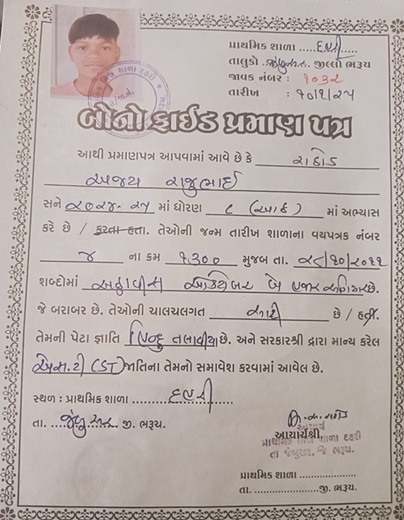 પ્રાથમિક શાળા : દહરી
તાલુકો : જંબુસર જીલ્લો ભરૂચ
જાવક નંબર : ૧૦૩૨
તારીખ : ૧૦/૧/૨૫
બોનોફાઈડ પ્રમાણ પત્ર
આથી પ્રમાણપત્ર આપવામાં આવે છે કે રાઠોડ
અજય રાજુભાઈ
સને ૨૦૨૪-૨૫ માં ધોરણ ૮ (આઠ) માં અભ્યાસ
કરે છે / કરતા હતા. તેઓની જન્મ તારીખ શાળાના વયપત્રક નંબર
૪ ના ક્રમ ૧૩૦૦ મુજબ તા. ૨૮/૧૦/૨૦૧૧
શબ્દોમાં અઠ્ઠાવીસ ઓક્ટોબર બે હજાર અગિયાર છે.
જે બરાબર છે. તેઓની ચાલચલગત સારી છે / હતી.
તેમની પેટા જ્ઞાતિ હિન્દુ તલાવીયા છે. અને સરકારશ્રી દ્વારા માન્ય કરેલ
એસ.ટી (ST) જાતિના તેમનો સમાવેશ કરવામાં આવેલ છે.
સ્થળ : પ્રાથમિક શાળા દહરી
તા. જંબુસર જી. ભરૂચ.
આચાર્ય
આચાર્યશ્રી,
પ્રાથમિક મિશ્ર શાળા દહરી
તા જંબુસર. જિ ભરૂચ.
પ્રાથમિક શાળા
તા. જી. ભરૂચ.